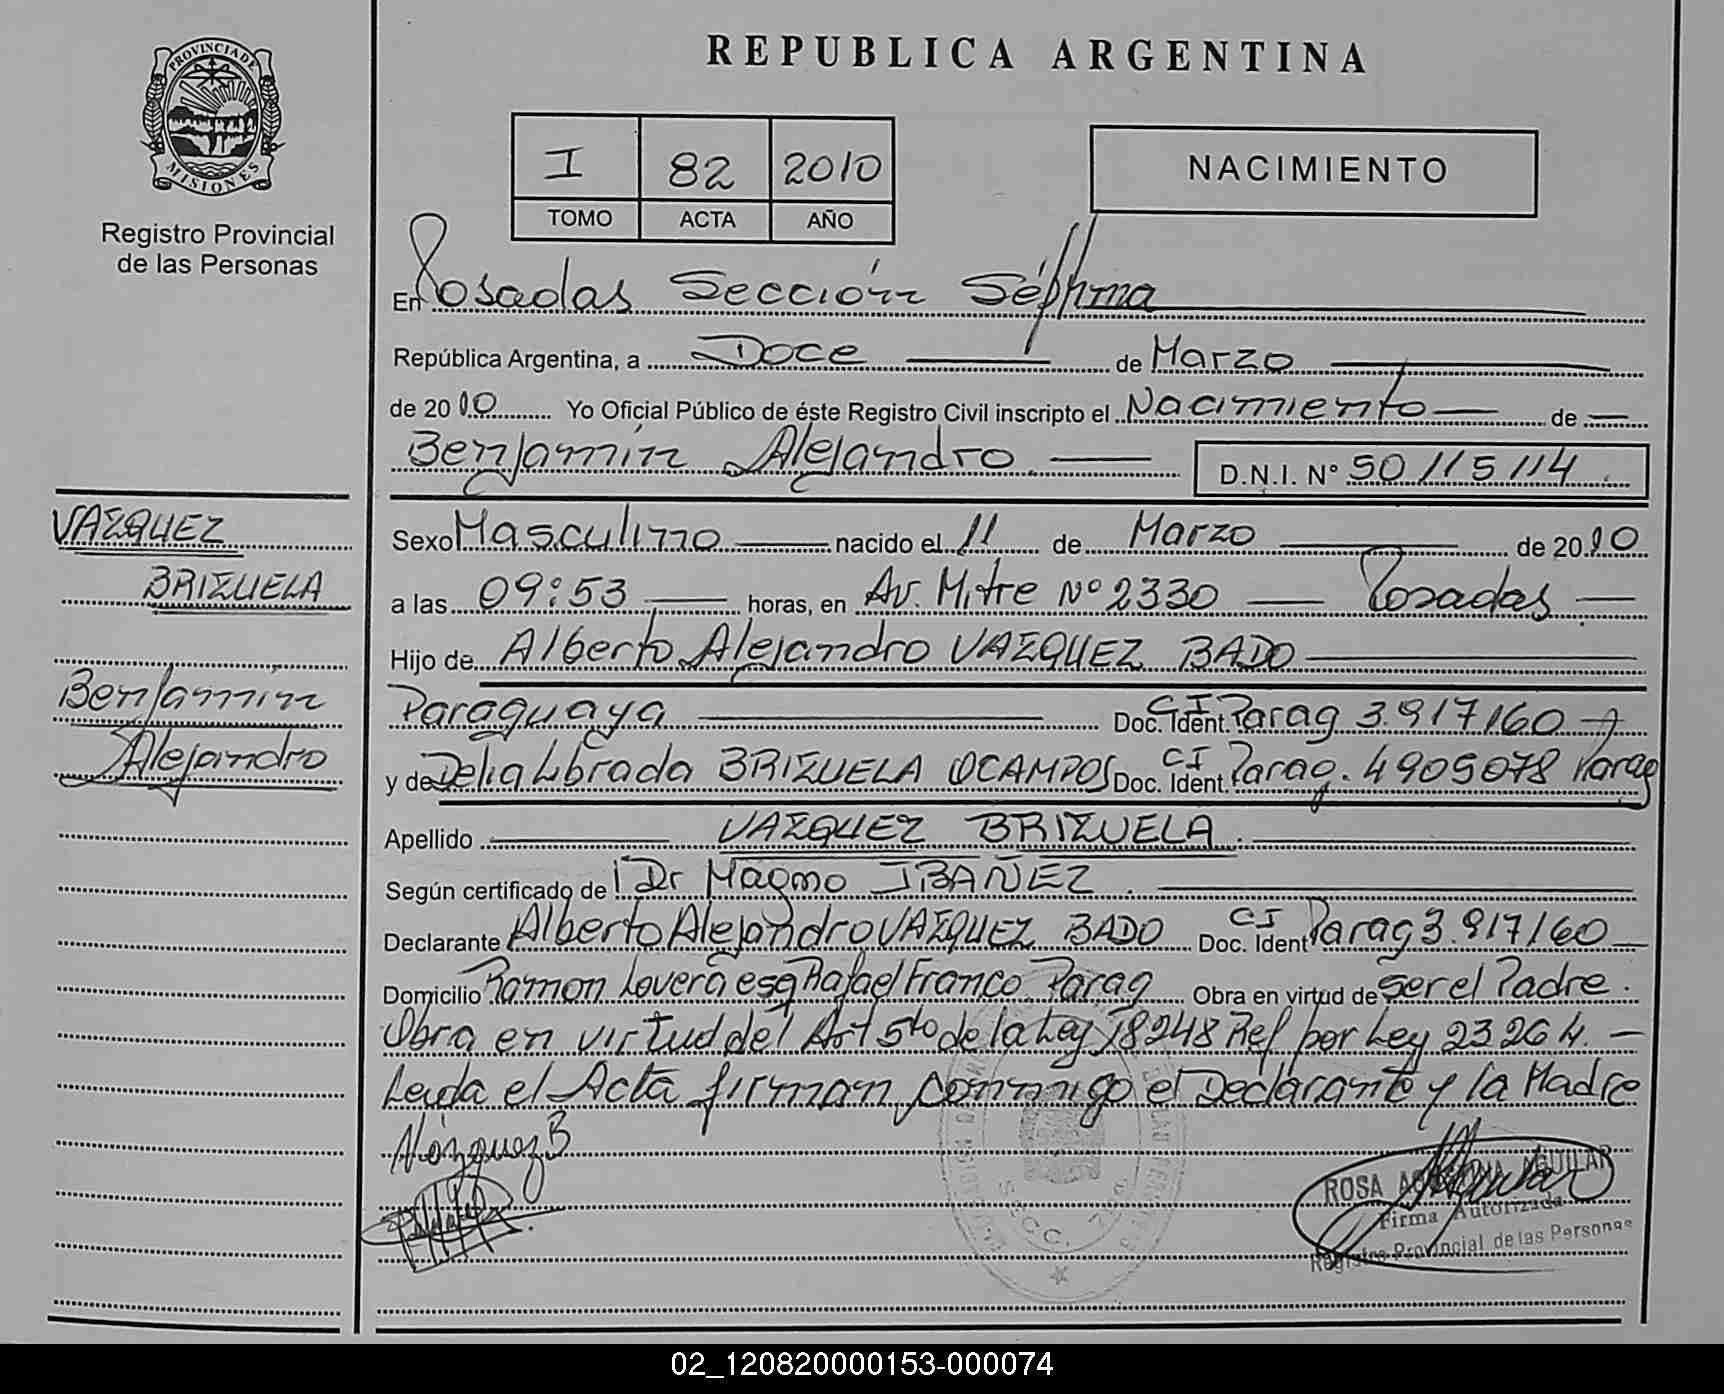 PROVINCIA DE
MISIONES
Registro Provincial
de las Personas
REPUBLICA ARGENTINA
I 82 2010
TOMO ACTA AÑO
NACIMIENTO
En Posadas Sección Séptima
República Argentina, a Doce de Marzo
de 2010 Yo Oficial Público de éste Registro Civil inscripto el Nacimiento de
Benjamín Alejandro D.N.I. N° 50115114
VAZQUEZ
BRIZUELA
Benjamín
Alejandro
Sexo Masculino nacido el 11 de Marzo de 2010
a las 09:53 horas, en Av. Mitre Nº 2330 Posadas
Hijo de Alberto Alejandro VAZQUEZ BADO
Paraguaya Doc. Ident. CI Parag 3.917160
y de Delia Librada BRIZUELA OCAMPOS Doc. Ident. CI Parag. 4905078 Parag
Apellido VAZQUEZ BRIZUELA.
Según certificado de Dr Magno IBAÑEZ.
Declarante Alberto Alejandro VAZQUEZ BADO Doc. Ident CI Parag 3.917160
Domicilio Ramon Lovera esq Rafael Franco Parag Obra en virtud de ser el Padre.
Obra en virtud del Art 5to de la Ley 18248 Ref por Ley 23264.-
Leida el Acta firman conmigo el Declarante y la Madre
Vázquez B
SECC. 7ma
ROSA AGUILAR
Firma Autorizada
Registro Provincial de las Personas
02_120820000153-000074